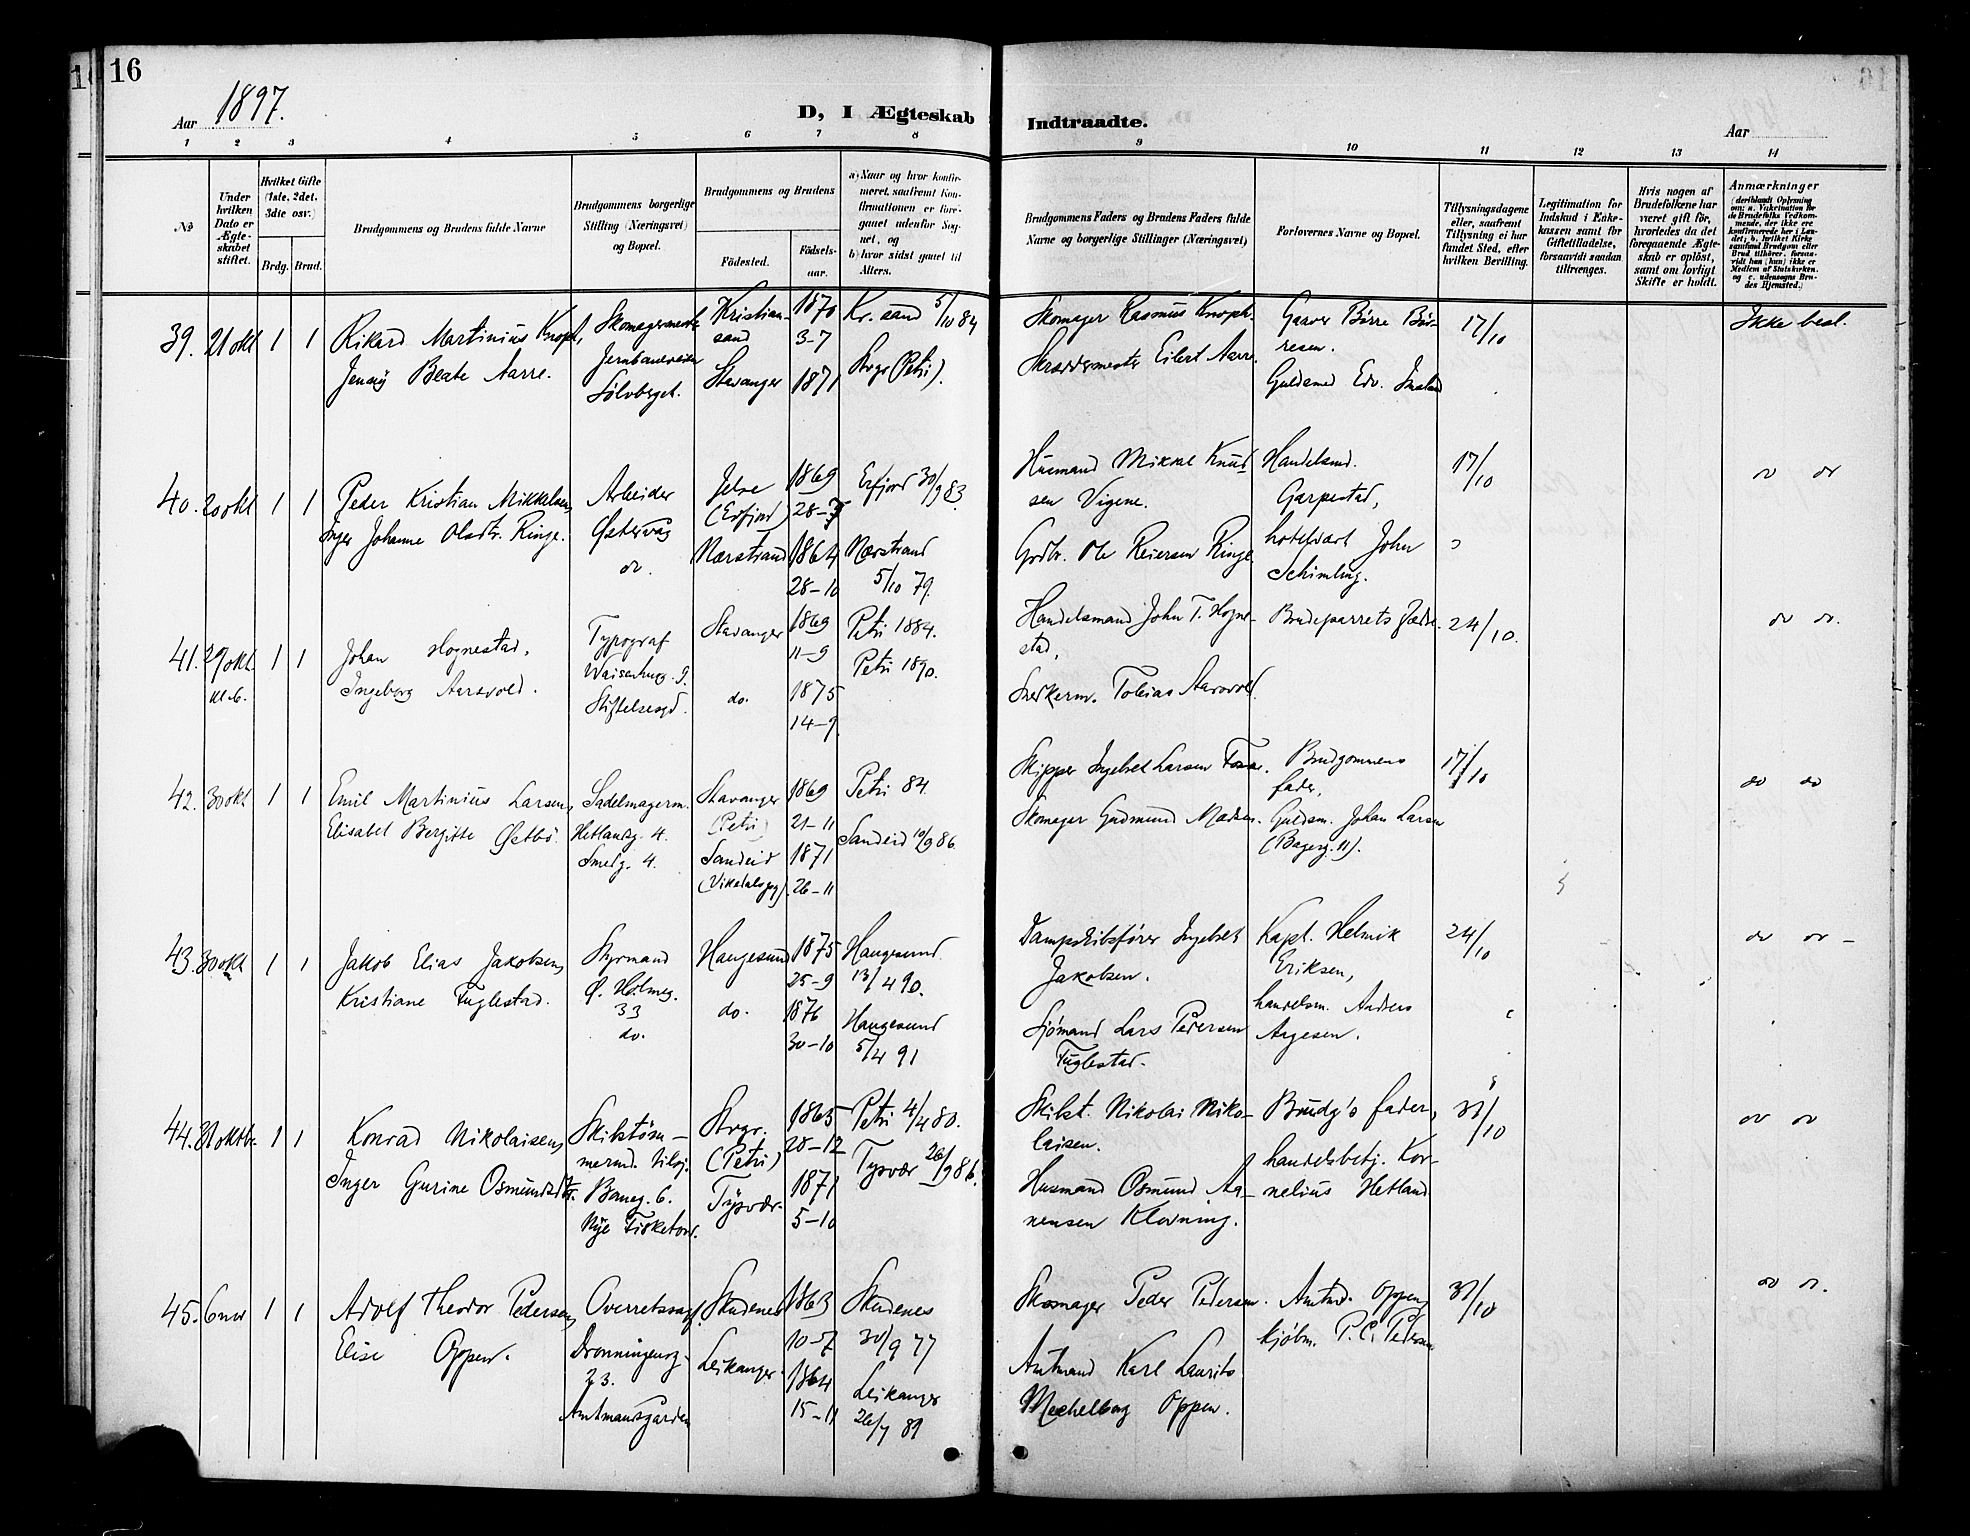 16
Aar 1897.
D, I Ægteskab Indtraadte.
Aar
1 2 3 4 5 6 7 8 9 10 11 12 13 14
No
Under hvilken Dato er Ægteskabet stiftet.
Hvilket Gifte (1ste, 2det, 3die osv.)
Brdg. Brud.
Brudgommens og Brudens fulde Navne
Brudgommens borgerlige Stilling (Næringsvei) og Bopæl.
Brudgommens og Brudens
Fødested.
Fødselsaar.
a) Naar og hvor konfirmeret, saafremt Konfirmationen er foregaaet udenfor Sognet, og
b) hvor sidst gaaet til Alters.
Brudgommens Faders og Brudens Faders fulde Navne og borgerlige Stillinger (Næringsvei)
Forlovernes Navne og Bopæl.
Tillysningsdagene eller, saafremt Tillysning ei har fundet Sted, efter hvilken Bevilling.
Legitimation for Indskud i Enkekassen samt for Giftetilladelse, forsaavidt saadan tiltrænges.
Hvis nogen af Brudefolkene har været gift før, hvorledes da det foregaaende Ægteskab er opløst, samt om lovligt Skifte er holdt.
Anmærkninger
39. 21 okt 1 1
Rikard Martinius Knoph,
Jenny Beate Aarre.
Skomagermester
Jernbaneveien
Sølvberget.
Kristiansand
Stavanger
1870
3-7
1871
Kr.sand 5/10 84
Svgr (Petri).
Skomager Rasmus Knoph.
Skræddermester Eilert Aarre.
Gaaver Børre Børresen.
Guldsmed Edv.
17/10
Ikke besl.
40. 20 okt 1 1
Peder Kristian Mikkelsen,
Inger Johanne Olsdtr. Ringe.
Arbeider
Østervåg
do.
Jelse
(Erfjord)
Nærstrand
1869
28-7
1864
28-10
Erfjord 30/9 83.
Nærstrand
5/10 79.
Husmand Mikkel Knudsen Vigene.
Grdbr. Ole Reiersen Ringe
Handelsmd.
Garpestad,
hotelvært John
Schimling.
17/10
do do
41. 29 okt 1 1
kl. 6.
Johan Hognestad,
Ingeborg Aarsvold.
Typograf
Waisenhusg. 9.
Stiftelsesgd.
Stavanger
do.
1869
11-9
1875
14-9
Petri 1884.
Petri 1890.
Handelsmand John T. Hognestad,
Snekerm. Tobias Aarsvold.
Brudeparrets fædre.
24/10.
do do.
42. 30 okt 1 1
Emil Martinius Larsen,
Elisabet Bergitte Østbø.
Sadelmagerm.
Hetlandsg. 4.
Smedg. 4.
Stavanger
(Petri)
Sandeid
(Vikedalspgj)
1869
21-11
1871
26-11
Petri 84.
Sandeid 10/9 86.
Skipper Ingebret Larsen
Skomager Gudmund Madsen.
Brudgommens
fader,
Guldsm. Johan Larsen
(Bagerg. 11).
17/10
do do
43. 30 okt 1 1
Jakob Elias Jakobsen,
Kristiane Fuglestad.
Styrmand
Ø. Holmeg.
33
do.
Haugesund
do.
1875
25-9
1876
30-10
Haugesund
13/4 90.
Haugesund
5/4 91
Dampskibsfører Ingebret
Jakobsen.
Sjømand Lars Pedersen
Fuglestad.
Kapt. Helmik
Eriksen,
handelsm. Anders
Aagesen.
24/10
do do -
44. 31 oktb. 1 1
Konrad Nikolaisen,
Inger Gurine Osmundsdtr.
Skibstømmermd.
Baneg. 6.
Nye Fisketorv.
Svgr.
(Petri)
Tysvær.
1865
28-12
1871
5-10
Petri 4/4 80.
Tysvær 26/9 86.
Skibst. Nikolai Nikolaisen.
Husmand Osmund Aanensen Klovning.
Brudg's fader,
handelsbetj. Kornelius Hetland
31/10
do do
45. 6 nov 1 1
Adolf Theodor Pedersen,
Elise Oppen.
Overretssagf.
Dronningensg.
23.
Amtmansgården
Skudenes
Leikanger.
1863
10-7
1864
15-11
Skudenes
30/9 77
Leikanger
26/7 81
Skomager Peder Pedersen.
Amtmand Karl Laurits
Mechelborg Oppen.
Amtmd. Oppen,
kjøbm. P. C. Pedersen
31/10
do do.